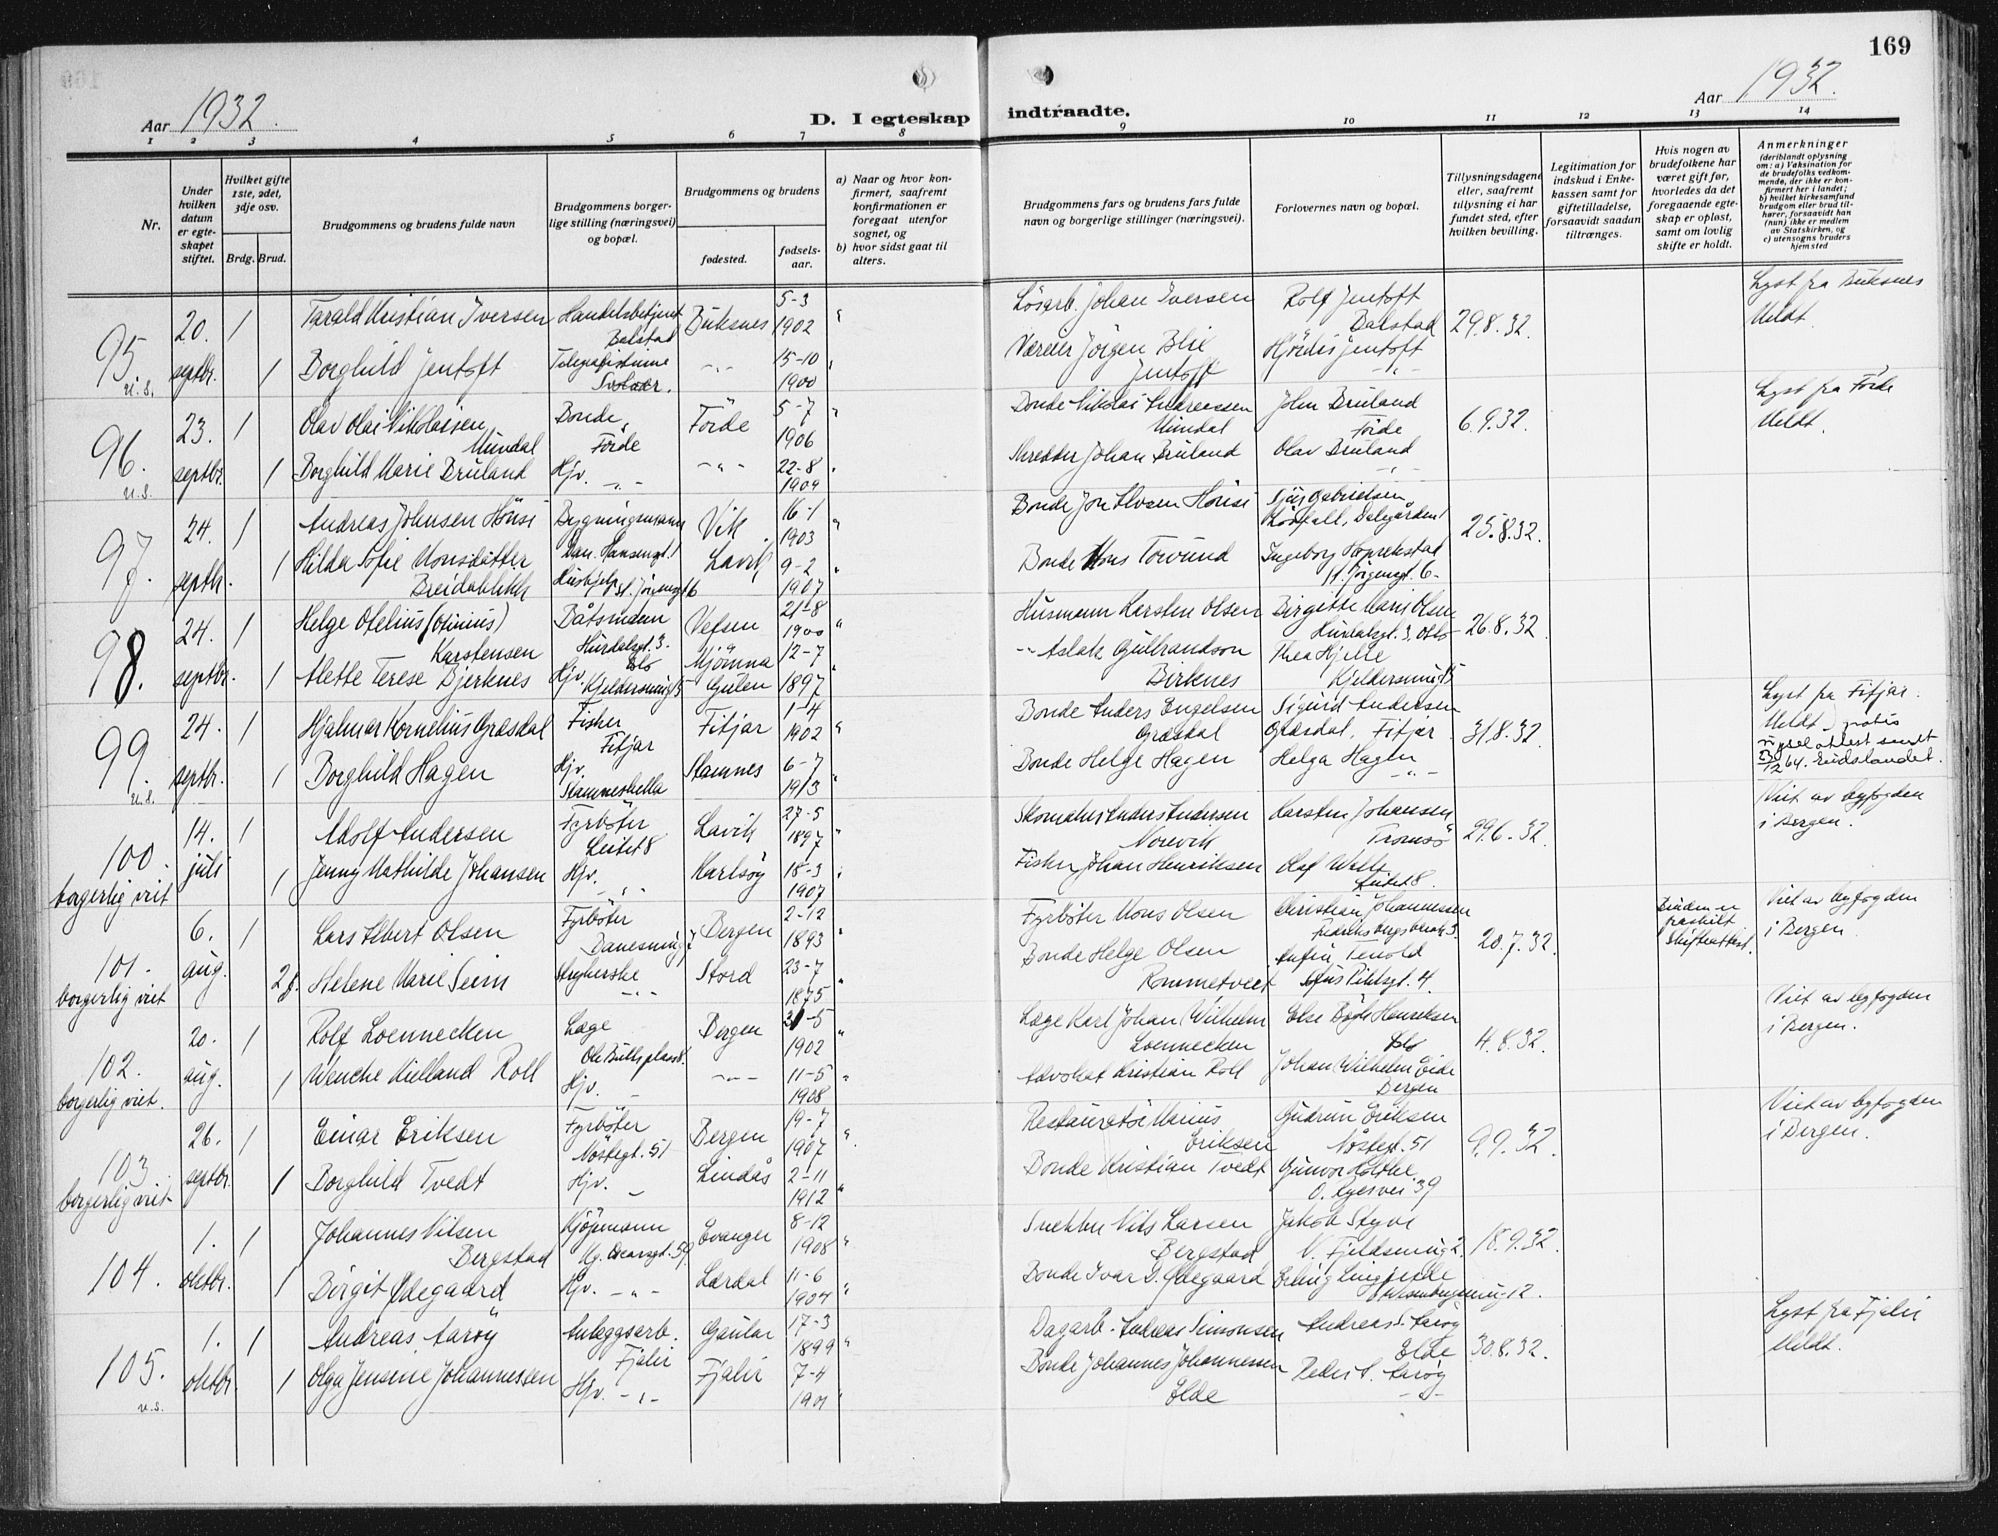 169
Aar 1932.
D. I egteskap indtraadte.
Aar 1932.
1 2 3 4 5 6 7 8 9 10 11 12 13 14
Nr.
Under hvilken datum er egteskapet stiftet.
Hvilket gifte 1ste, 2det, 3dje osv.
Brdg. Brud.
Brudgommens og brudens fulde navn
Brudgommens borgerlige stilling (næringsvei) og bopæl.
Brudgommens og brudens
fødested.
fødselsaar.
a) Naar og hvor konfirmert, saafremt konfirmationen er foregaat utenfor sognet, og
b) hvor sidst gaat til alters.
Brudgommens fars og brudens fars fulde navn og borgerlige stillinger (næringsvei).
Forlovernes navn og bopæl.
Tillysningsdagene eller, saafremt tillysning ei har fundet sted, efter hvilken bevilling.
Legitimation for indskud i Enkekassen samt for giftetilladelse, forsaavidt saadan tiltrænges.
Hvis nogen av brudefolkene har været gift før, hvorledes da det foregaaende egteskap er opløst, samt om lovlig skifte er holdt.
Anmerkninger
(deriblandt oplysning om: a) Vaksination for de brudefolks vedkommende, der ikke er konfirmert her i landet; b) hvilket kirkesamfund brudgom eller brud tilhører, forsaavidt han (hun) ikke er medlem av Statskirken, og c) utensogns bruders hjemsted
95. u.s. 20. septbr. 1 Tarald Kristian Iversen Handelsbetjent Balstad Buksnes 5-3 1902 Løsarb. Johan Iversen Rolf Jentoft Balstad 29.8.32. Lyst fra Buksnes Meldt.
1 Borghild Jentoft Telegrafistinne Svolvær. -"- 15-10 1900 Væreier Jörgen Blix Jentoft Hjördis Jentoft -"-
96. u.s. 23. septbr. 1 Olav Olai Nikolaisen Mundal Bonde, Förde Förde 5-7 1906 Bonde Nikolai Andreassen Mundal John Bruland Förde 6.9.32. Lyst fra Förde Meldt.
1 Borghild Marie Bruland Hjv. -"- -"- 22-8 1909 Skredder Johan Bruland Olav Bruland -"-
97. 24. septbr. 1 Andreas Johnsen Hönsi Bygningsmann Dan. Hansensgt. 1 Vik 16-1 1903 Bonde Jon Olsen Hönsi Gabrielsen 25.8.32.
1 Hilda Sofie Monsdotter Breidablikk Hushjelp St. Jörgensgt 6 Lavik 9-2 1907 Bonde Mons Torvund Ingeborg St. Jörgensgt. 6-
98. 24. septbr. 1 Helge Otelius (Otinius) Karstensen Båtsmann Hurdalsgt. 3. Oslo Vefsen 21-8 1900 Husmann Karsten Olsen Birgitte Marie Olsen Hurdalsgt. 3. Oslo 26.8.32.
1 Mette Terese Bjerknes Hjv. Kjeldersmug 5 Mjömna Gulen 12-7 1897 -"- Aslak Gulbrandson Birknes Thea Hjelle Kjeldersmug 5
99. u.s. 24. septbr. 1 Hjalmar Kornelius Græsdal Fisker Fitjar Fitjar 1-4 1902 Bonde Anders Engelsen Græsdal Sigurd Andersen Græsdal, Fitjar 31.8.32. Lyst fra Fitjar. Meldt.
1 Borghild Hagen Hjv. Stamneshella Stamnes 6-7 1913 Bonde Helge Hagen Helga Hagen -"-
100. borgerlig viet 14. juli 1 Adolf Andersen Fyrböter Leitet 8 Lavik 27-5 1897 Skomaker Anders Andersen Norevik Karsten Johansen Tromsö 29.6.32. Viet av byfogden i Bergen.
1 Jenny Mathilde Johansen Hjv. -"- Karlsöy 18-3 1907 Fisker Johan Henriksen Olaf Leitet 8.
101. borgerlig viet 6. aug. 1 Lars Albert Olsen Fyrböter Danesmug 7 Bergen 2-12 1893 Fyrböter Mons Olsen Christian Johannessen 20.7.32. Bruden er fraskilt Skifteattest. Viet av byfogden i Bergen.
2 g. Helene Marie Seim Strykerske -"- Stord 23-7 1875 Bonde Helge Olsen Rommetveit Tenold 4.
102. borgerlig viet. 20. aug. 1 Rolf Loennecken Læge Ole Bulls plass 8 Bergen 31-5 1902 Læge Karl Johan Wilhelm Loennecken Else Bøye Henriksen Oslo 4.8.32. Viet av byfogden i Bergen.
1 Wenche Kielland Roll Hjv. - -"- 11-5 1908 Advokat Kristian Roll Johan Wilhelm Eide Bergen
103. borgerlig viet 26. septbr. 1 Einar Eriksen Fyrböter Nöstegt. 51 Bergen 19-7 1907 Restauratör Marius Eriksen Gudrun Eriksen Nöstegt. 51 9.9.32. Viet av byfogden i Bergen.
1 Borghild Tvedt Hjv. - Lindås 2-11 1912 Bonde Kristian Tvedt Gunvor Holthe O. Ryesvei 39
104. 1. oktbr. 1 Johannes Nilsen Bergstad Kjöpmann Kg. Oscarsgt. 59. Evanger 8-12 1908 Snekker Nils Larsen Bergstad Jakob Styve V. Fjeldsmug 2. 18.9.32.
1 Birgit Ødegaard Hjv. -"- Lærdal 11-6 1907 Bonde Ivar D. Ødegaard Erling Lingjerde 12.
105. u.s. 1. oktbr. 1 Andreas Aaröy Anleggsarb. Fjaler Gaular 17-3 1899 Dagarb. Andreas Simonsen Andreas S. Aaröy Elde 30.8.32. Lyst fra Fjaler Meldt.
1 Olga Jensene Johannessen Hjv. -"- Fjaler 7-4 1901 Bonde Johannes Johannessen Elde Peder A. Aaröy -"-